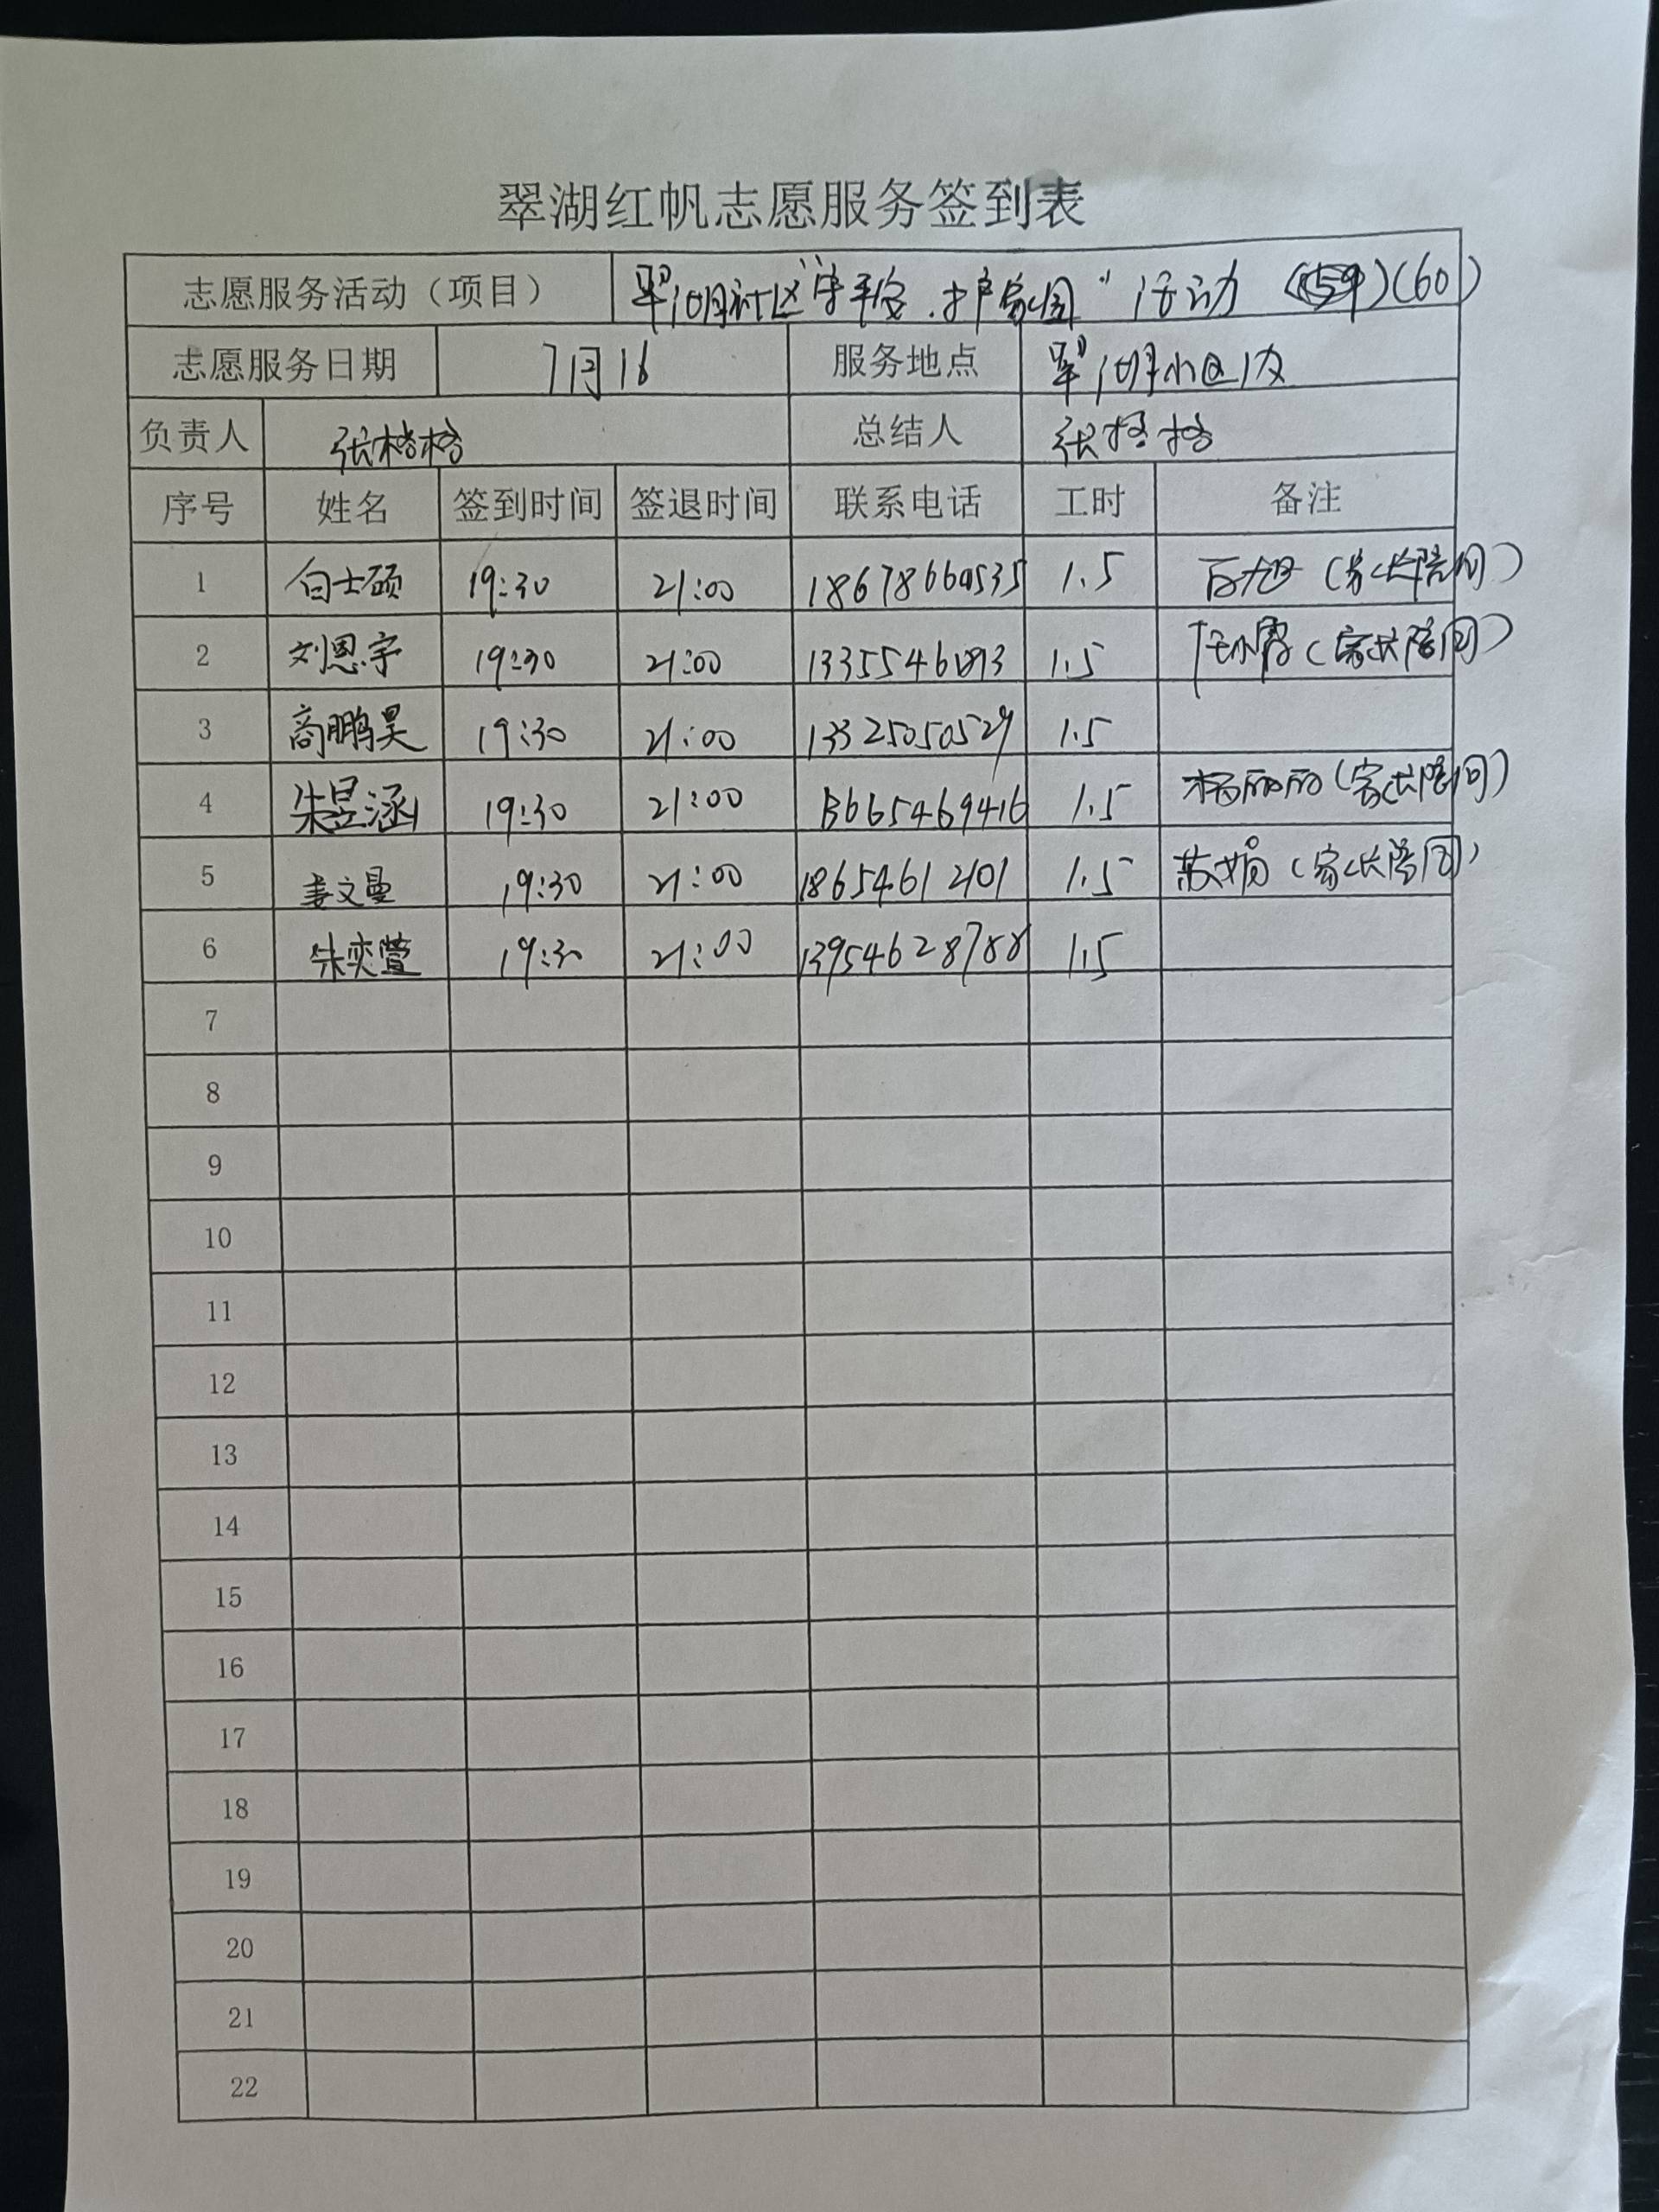 翠湖红帆志愿服务签到表
志愿服务活动（项目） 翠湖社区“守平安，护家园”活动 (60)
志愿服务日期 7月16 服务地点 翠湖小区内
负责人 张格格 总结人 张格格
序号 姓名 签到时间 签退时间 联系电话 工时 备注
1 白士硕 19:30 21:00 18678660535 1.5 （家长陪同）
2 刘恩宇 19:30 21:00 1.5 （家长陪同）
3 商鹏昊 19:30 21:00 13325050529 1.5
4 朱昱涵 19:30 21:00 13665469416 1.5 杨丽丽（家长陪同）
5 姜文曼 19:30 21:00 18654612101 1.5 苏娟（家长陪同）
6 朱奕萱 19:30 21:00 13954628788 1.5
7
8
9
10
11
12
13
14
15
16
17
18
19
20
21
22